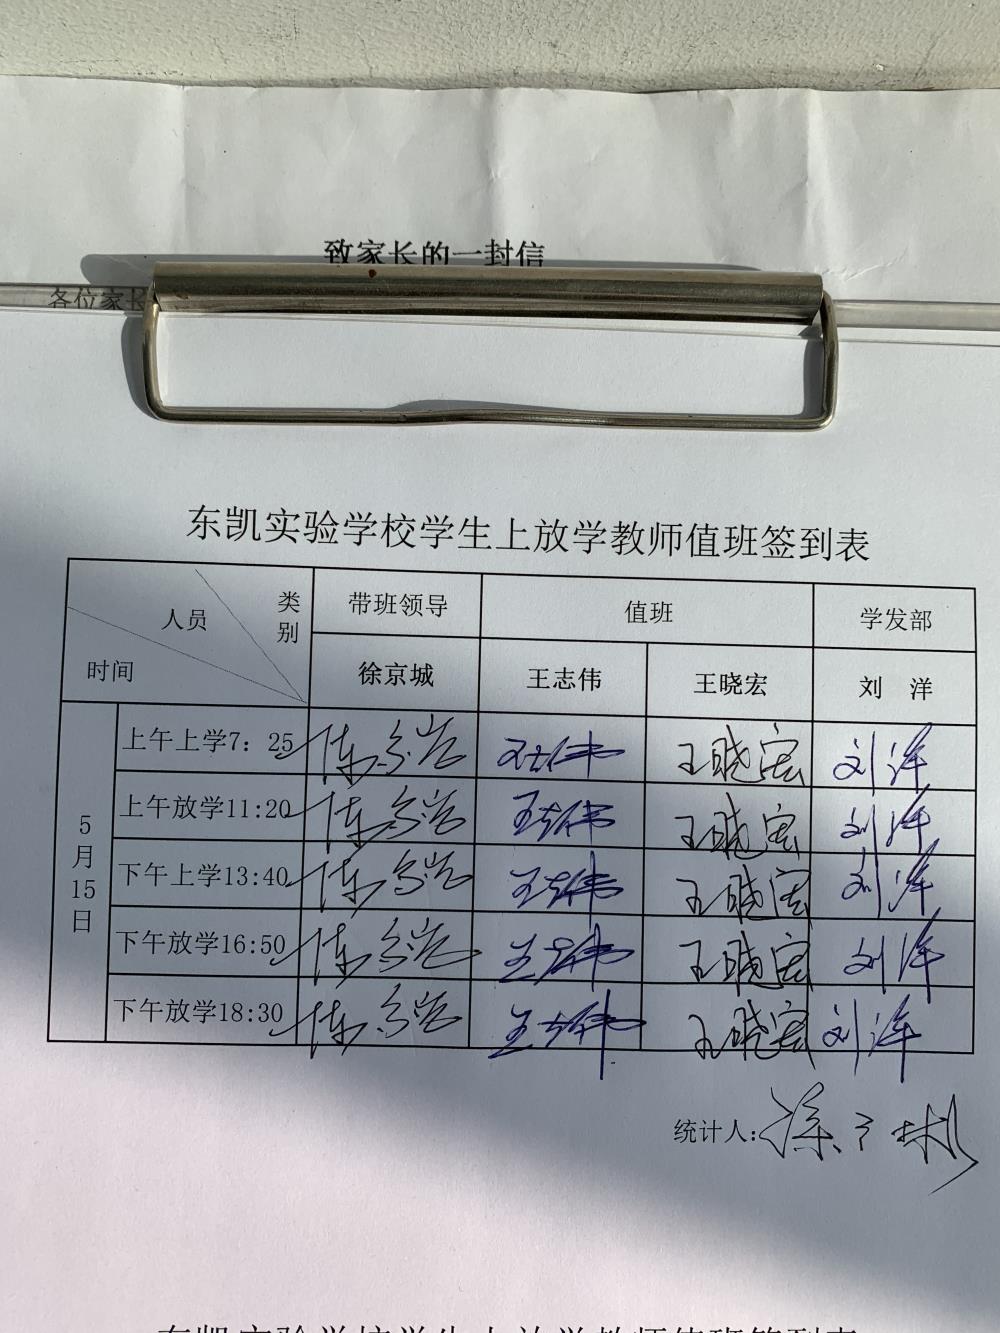 致家长的一封信
各位家长
东凯实验学校学生上放学教师值班签到表
人员 类别 时间 带班领导 值班 学发部
徐京城 王志伟 王晓宏 刘 洋
5月15日
上午上学7：25 徐京城 王志伟 王晓宏 刘洋
上午放学11:20 徐京城 王志伟 王晓宏 刘洋
下午上学13:40 徐京城 王志伟 王晓宏 刘洋
下午放学16:50 徐京城 王志伟 王晓宏 刘洋
下午放学18:30 徐京城 王志伟 王晓宏 刘洋
统计人:
东凯实验学校学生上放学教师值班签到表